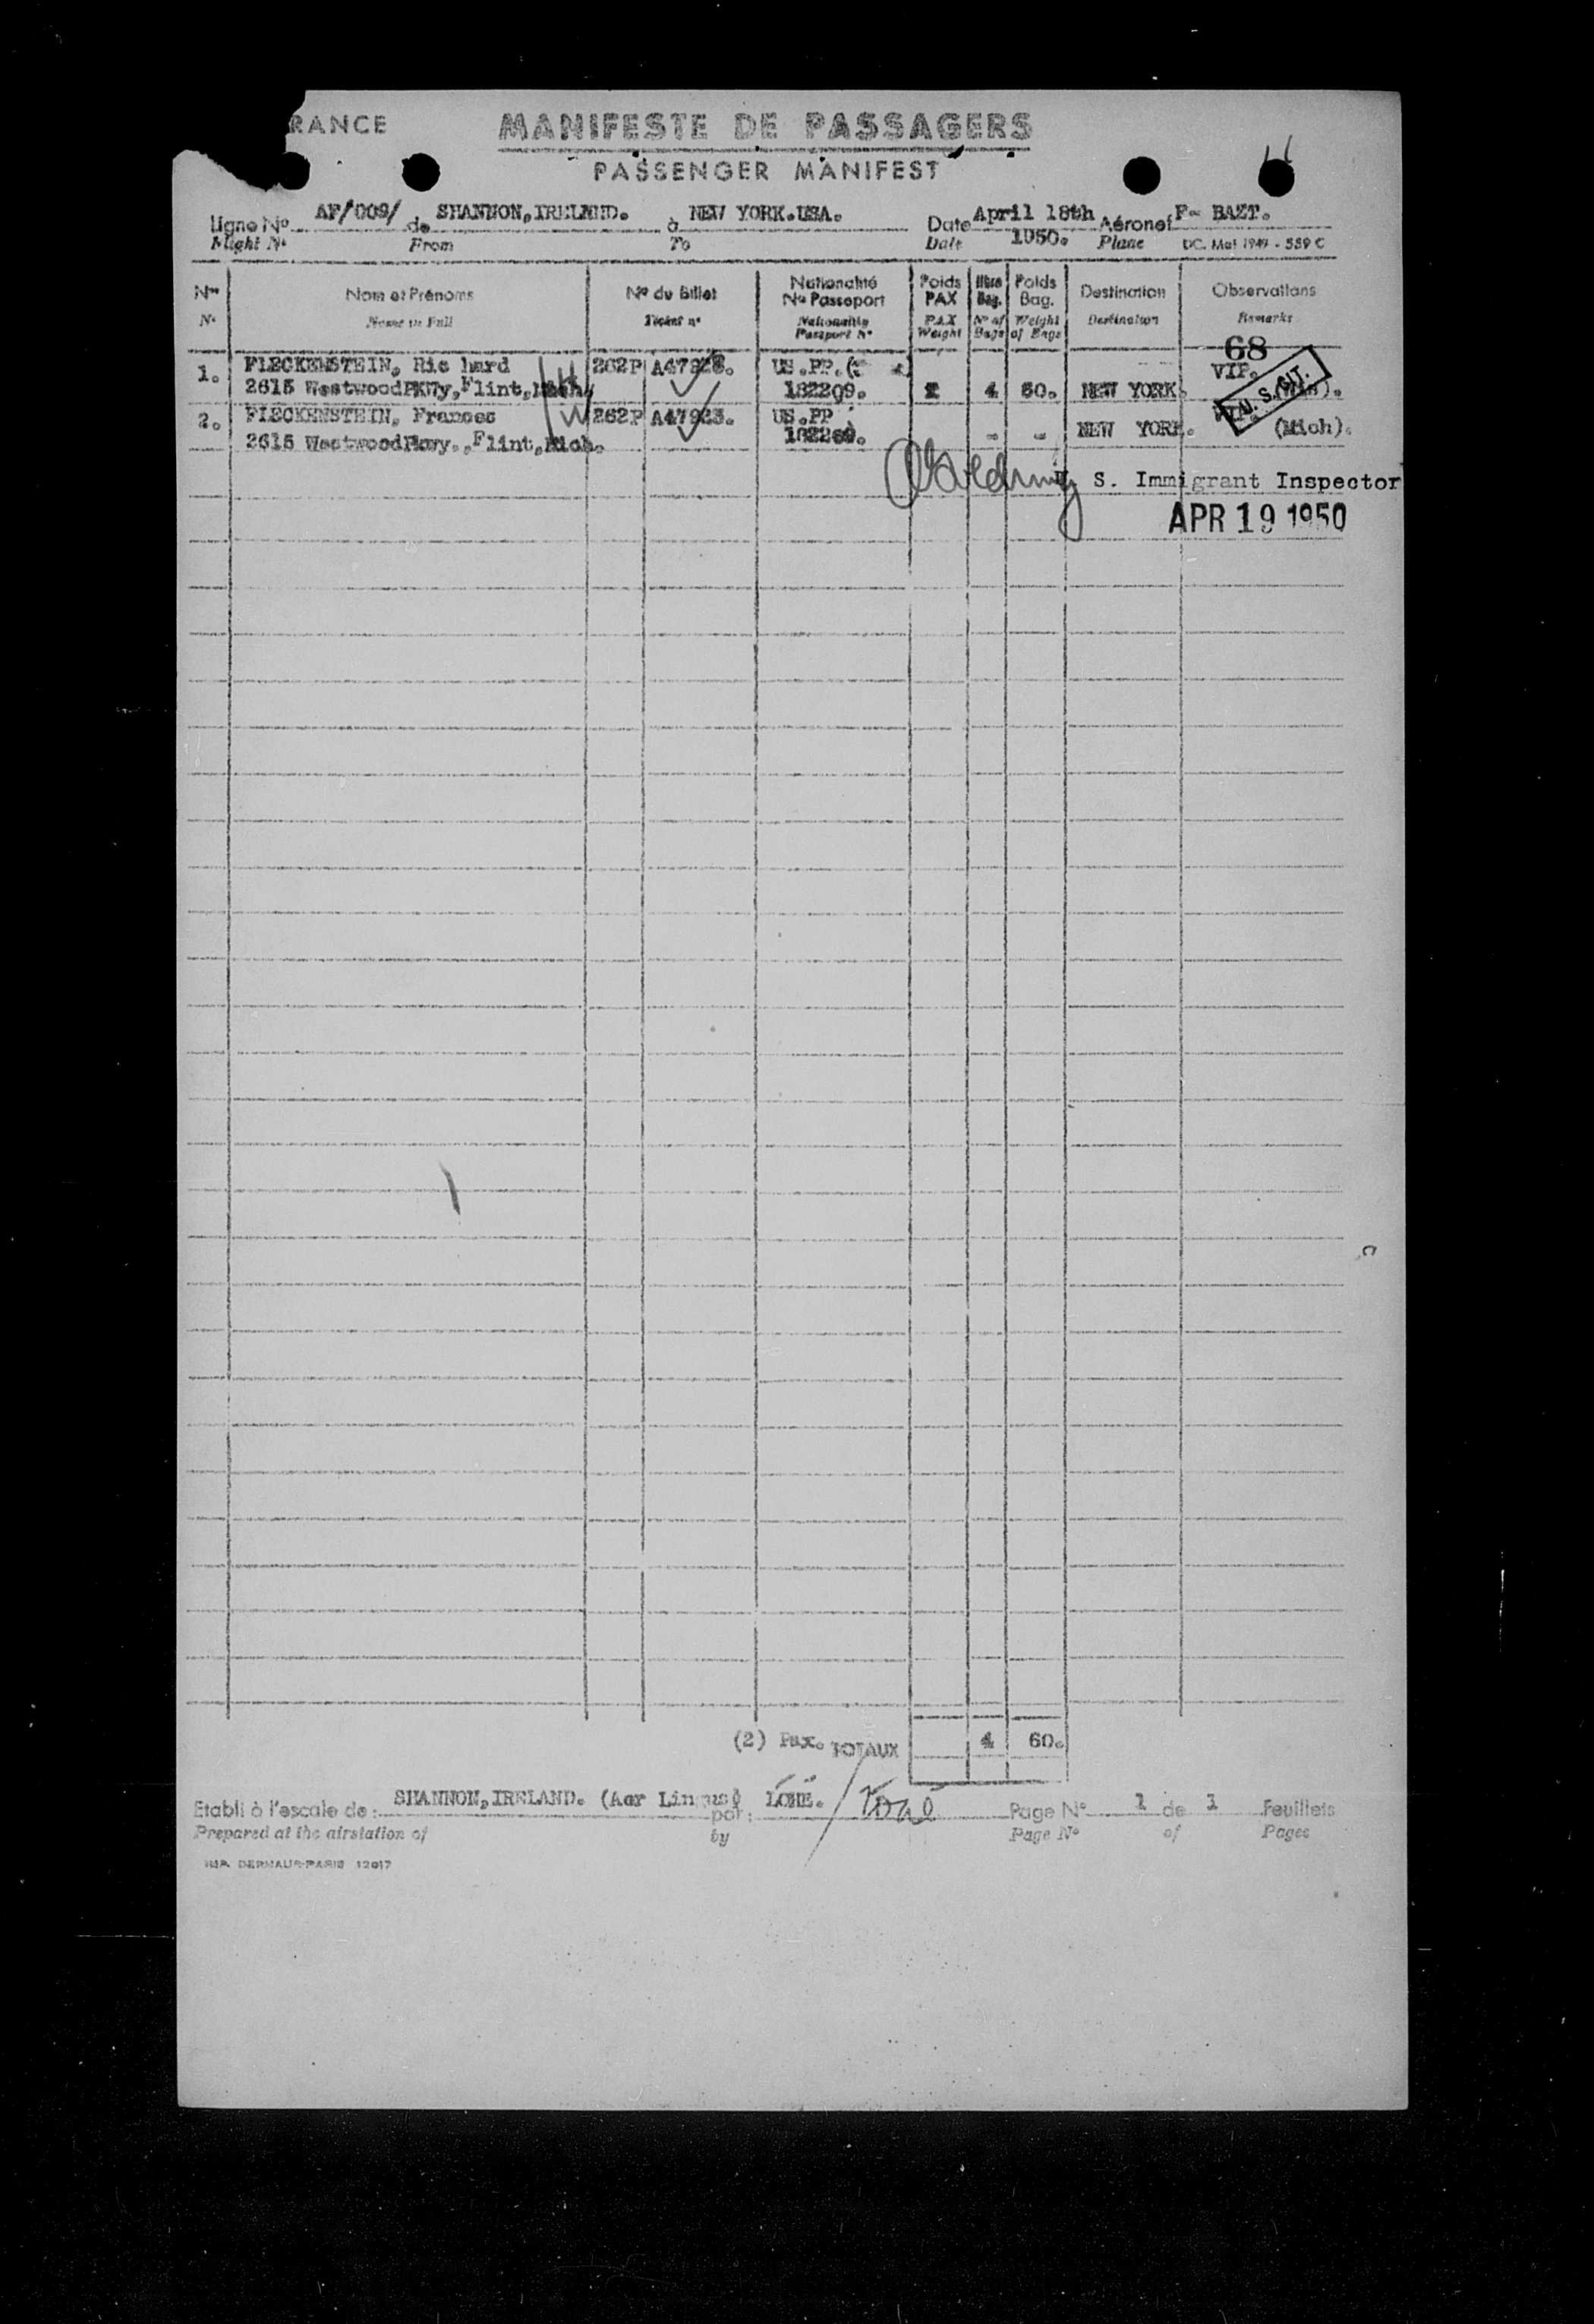 RANCE
MANIFESTE DE PASSAGERS
PASSENGER MANIFEST
Ligne No AF/009/ de SHANNON,IRELAND. à NEW YORK.USA. Date April 18th 1950. Aéronef F- BAZT.
Flight No From To Date Plane DC. Mat 1949 - 559 C
Nos Nom et Prénoms No du Billet Nationalité No Passeport Poids PAX Nbre Bag. Poids Bag. Destination Observations
No Name in Full Ticket no Nationality Passport No PAX Weight No of Bags Weight of Bags Destination Remarks
68
1. FLECKENSTEIN, Ric hard 262P US.PP. VIP.
2615 WestwoodPKWy,Flint,Mich. 4 60. NEW YORK.
2. FLECKENSTEIN, Frances 262P A47923. US.PP
2615 WestwoodPkwy.,Flint,Mich. - - NEW YORK. (Mich).
U. S. Immigrant Inspector
APR 19 1950
(2) Pax. TOTAUX 4 60.
Etabli à l'escale de: SHANNON,IRELAND. (Aer Lingus) par: Page No 1 de 1 Feuillets
Prepared at the airstation of by Page No of Pages
IMP. DERNAUR-PARIS 12017